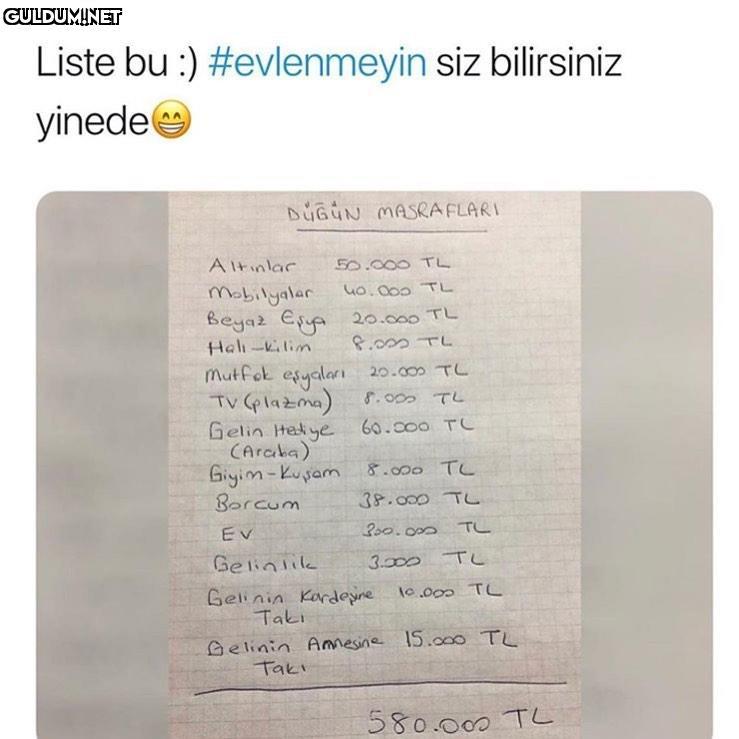 GULDUM.NET
Liste bu :) #evlenmeyin siz bilirsiniz
yinede😁
DÜĞÜN MASRAFLARI
Altınlar 50.000 TL
Mobilyalar 40.000 TL
Beyaz Eşya 20.000 TL
Halı-kilim 8.000 TL
Mutfak eşyaları 20.000 TL
TV (plazma) 8.000 TL
Gelin Hediye 60.000 TL
(Araba)
Giyim-Kuşam 8.000 TL
Borcum 38.000 TL
EV 300.000 TL
Gelinlik 3.000 TL
Gelinin Kardeşine 10.000 TL
Takı
Gelinin Annesine 15.000 TL
Takı
580.000 TL